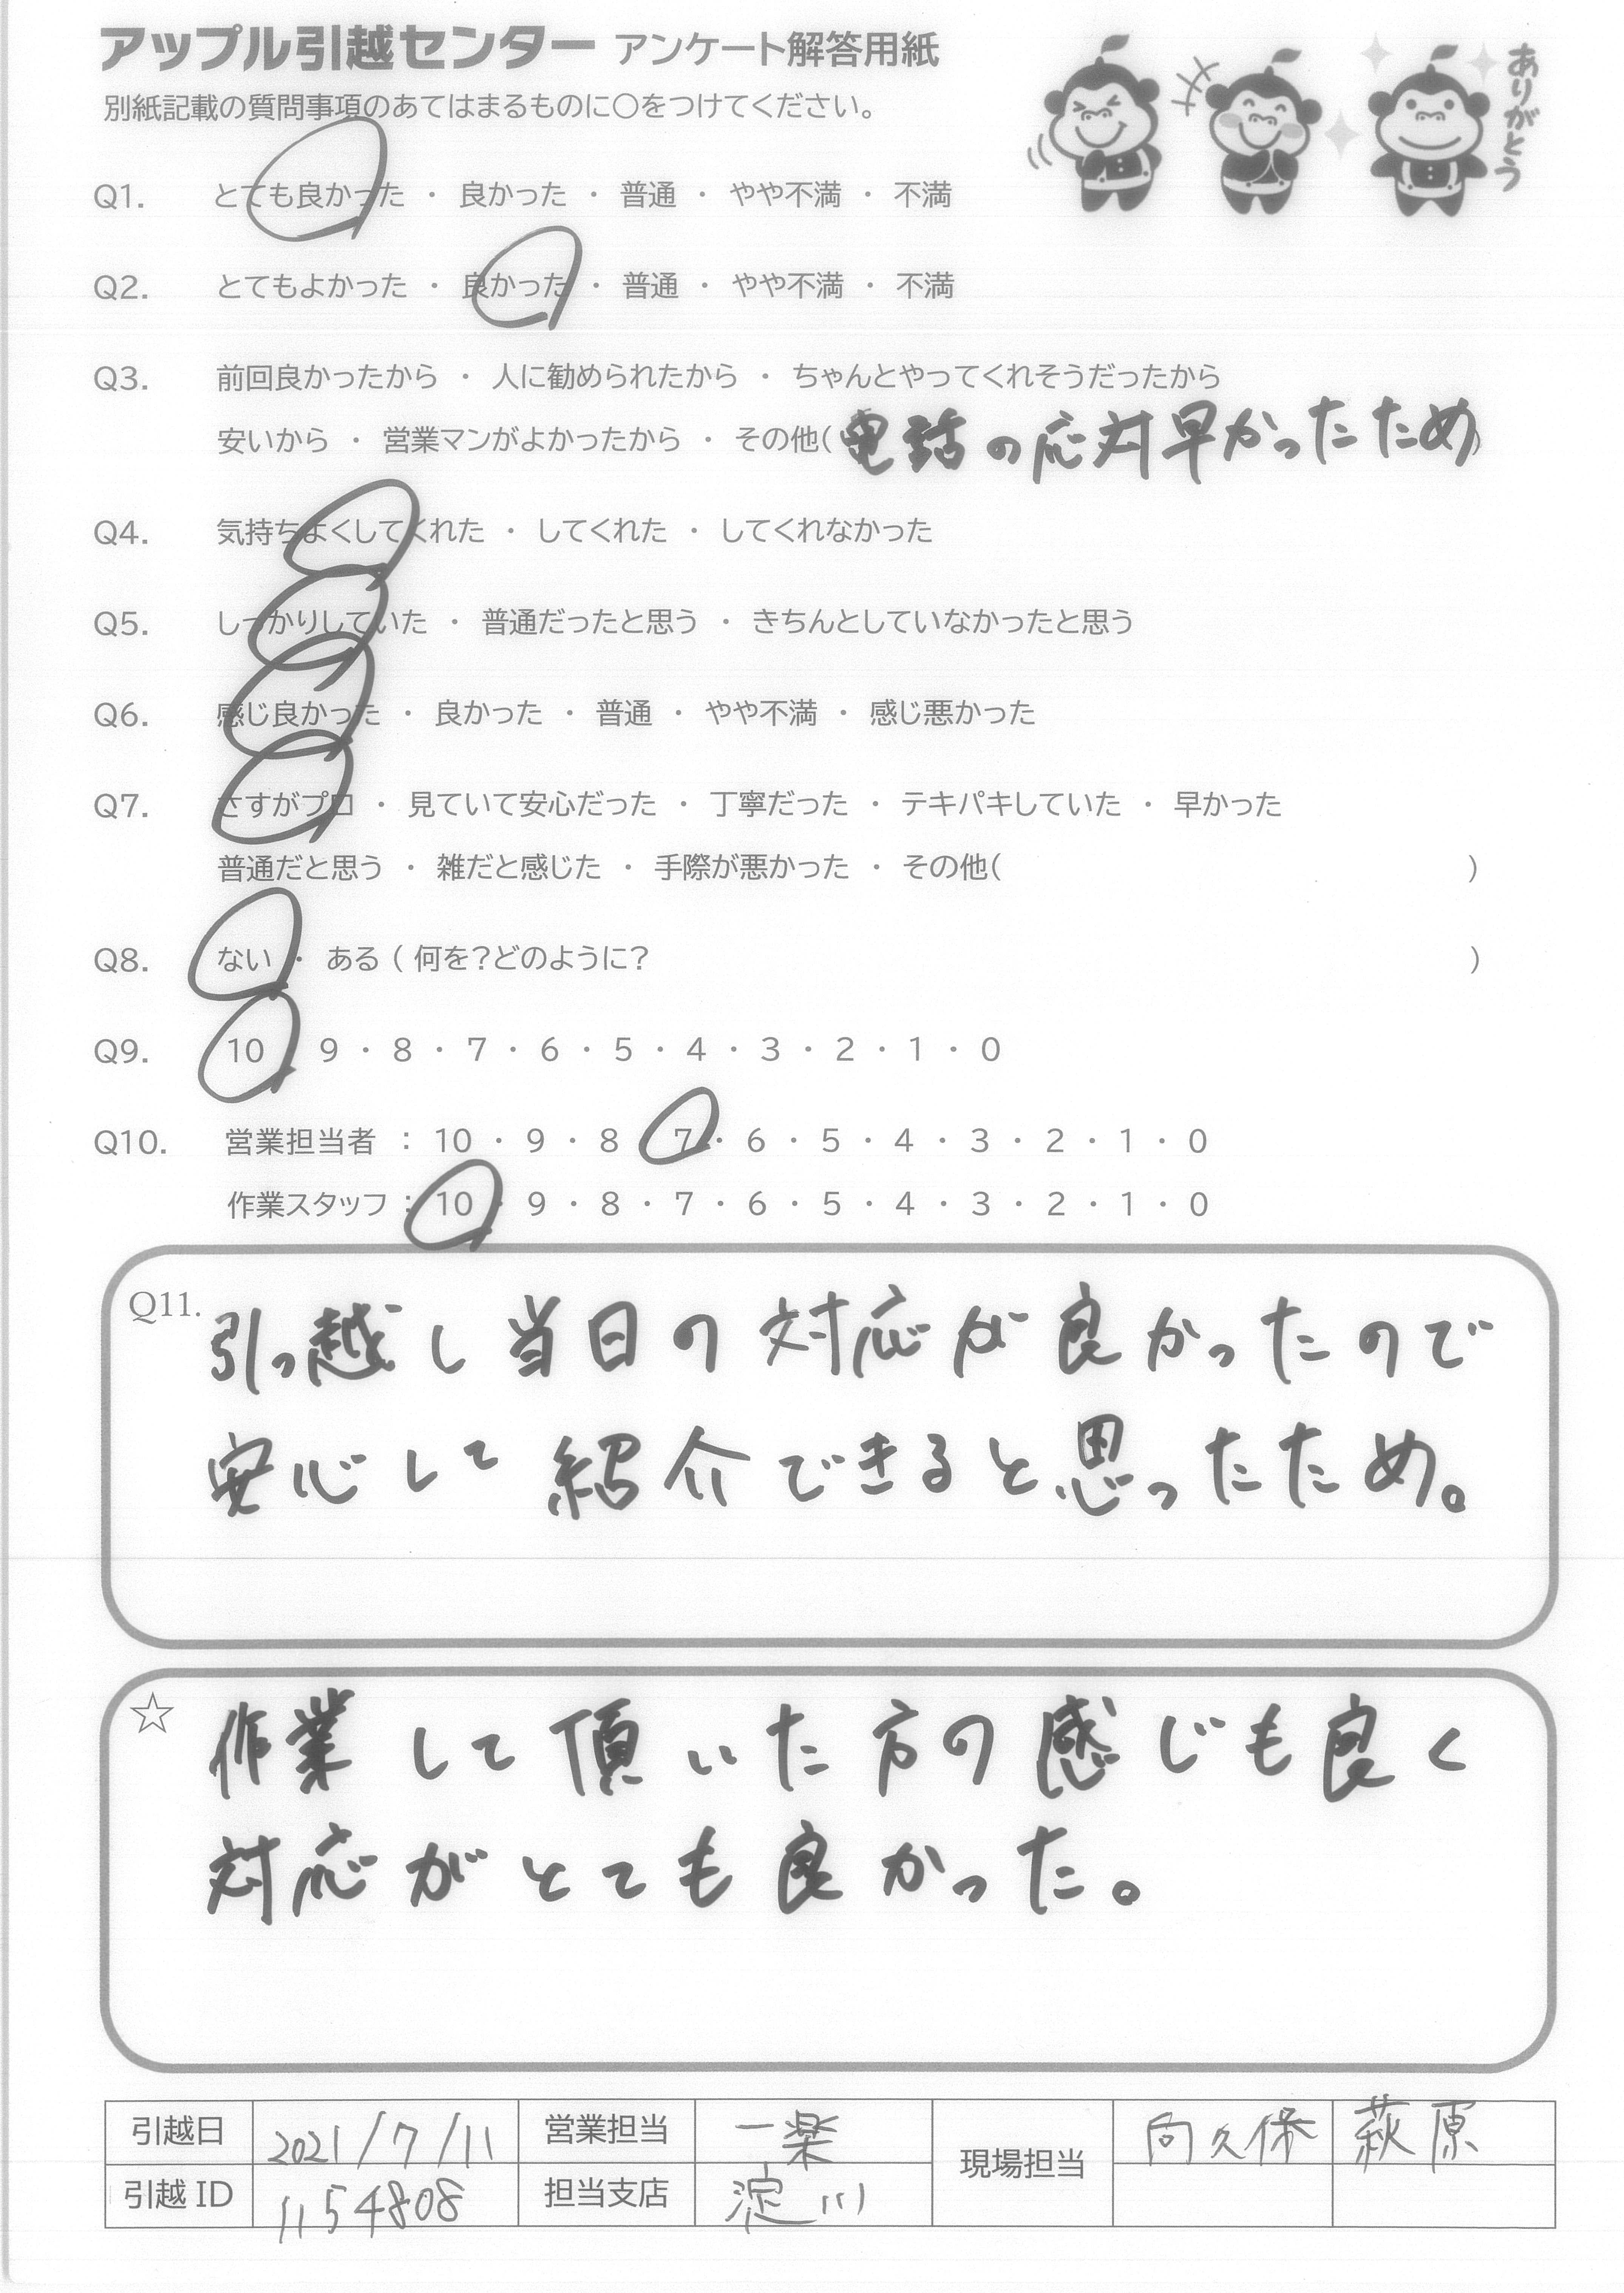 アップル引越センター アンケート解答用紙
別紙記載の質問事項のあてはまるものに〇をつけてください。
ありがとう
Q1. とても良かった ・ 良かった ・ 普通 ・ やや不満 ・ 不満
Q2. とてもよかった ・ 良かった ・ 普通 ・ やや不満 ・ 不満
Q3. 前回良かったから ・ 人に勧められたから ・ ちゃんとやってくれそうだったから
安いから ・ 営業マンがよかったから ・ その他(電話の応対早かったため)
Q4. 気持ちよくしてくれた ・ してくれた ・ してくれなかった
Q5. しっかりしていた ・ 普通だったと思う ・ きちんとしていなかったと思う
Q6. 感じ良かった ・ 良かった ・ 普通 ・ やや不満 ・ 感じ悪かった
Q7. さすがプロ ・ 見ていて安心だった ・ 丁寧だった ・ テキパキしていた ・ 早かった
普通だと思う ・ 雑だと感じた ・ 手際が悪かった ・ その他( )
Q8. ない ・ ある ( 何を?どのように? )
Q9. 10 ・ 9 ・ 8 ・ 7 ・ 6 ・ 5 ・ 4 ・ 3 ・ 2 ・ 1 ・ 0
Q10. 営業担当者 : 10 ・ 9 ・ 8 ・ 7 ・ 6 ・ 5 ・ 4 ・ 3 ・ 2 ・ 1 ・ 0
作業スタッフ : 10 ・ 9 ・ 8 ・ 7 ・ 6 ・ 5 ・ 4 ・ 3 ・ 2 ・ 1 ・ 0
Q11. 引っ越し当日の対応が良かったので
安心して紹介できると思ったため。
☆ 作業して頂いた方の感じも良く
対応がとても良かった。
引越日 2021/7/11 営業担当 一楽 現場担当 向久保 萩原
引越ID 1154808 担当支店 淀川